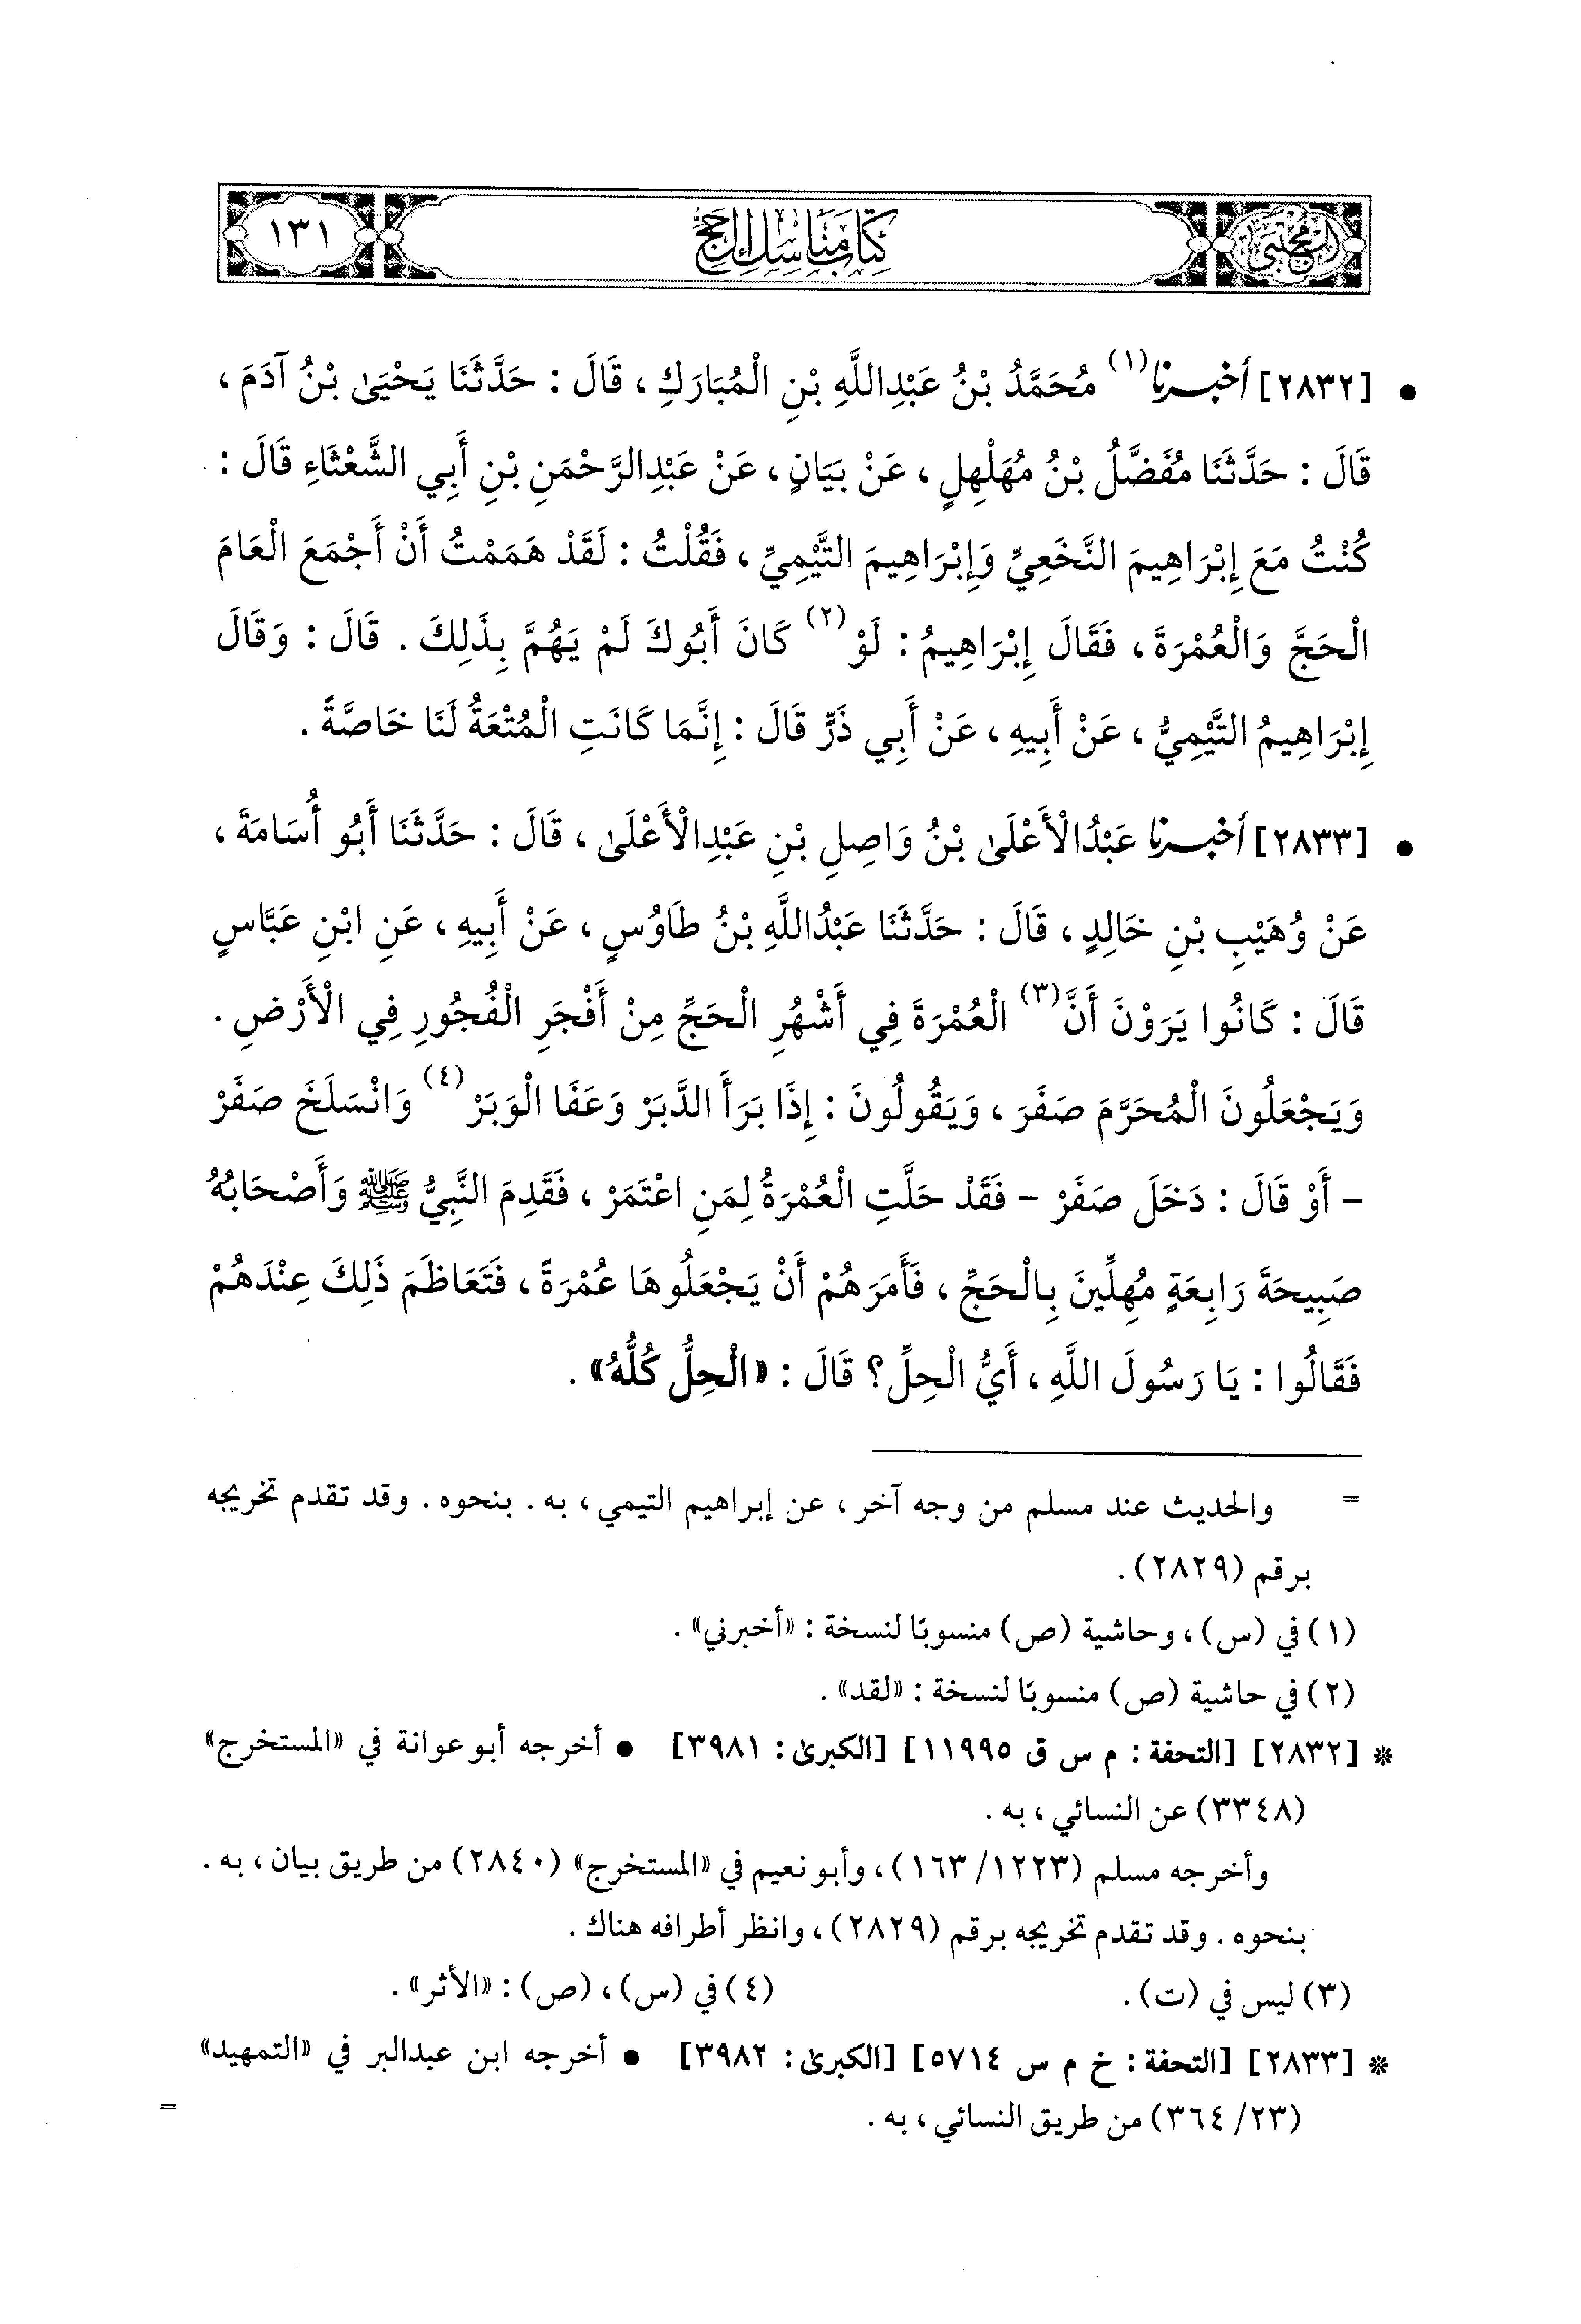 المجتبى
كتاب مناسك الحج
١٣١
• [٢٨٣٢] أخبرنا(١) مُحَمَّدُ بْنُ عَبْدِاللَّهِ بْنِ الْمُبَارَكِ ، قَالَ : حَدَّثَنَا يَحْيَىٰ بْنُ آدَمَ ،
قَالَ : حَدَّثَنَا مُفَضَّلُ بْنُ مُهَلْهِلٍ ، عَنْ بَيَانٍ ، عَنْ عَبْدِالرَّحْمَنِ بْنِ أَبِي الشَّعْثَاءِ قَالَ :
كُنْتُ مَعَ إِبْرَاهِيمَ النَّخَعِيِّ وَإِبْرَاهِيمَ التَّيْمِيِّ ، فَقُلْتُ : لَقَدْ هَمَمْتُ أَنْ أَجْمَعَ الْعَامَ
الْحَجَّ وَالْعُمْرَةَ ، فَقَالَ إِبْرَاهِيمُ : لَوْ(٢) كَانَ أَبُوكَ لَمْ يَهُمَّ بِذَلِكَ . قَالَ : وَقَالَ
إِبْرَاهِيمُ التَّيْمِيُّ ، عَنْ أَبِيهِ ، عَنْ أَبِي ذَرٍّ قَالَ : إِنَّمَا كَانَتِ الْمُتْعَةُ لَنَا خَاصَّةً .
• [٢٨٣٣] أخبرنا عَبْدُالْأَعْلَىٰ بْنُ وَاصِلِ بْنِ عَبْدِالْأَعْلَىٰ ، قَالَ : حَدَّثَنَا أَبُو أُسَامَةَ ،
عَنْ وُهَيْبِ بْنِ خَالِدٍ ، قَالَ : حَدَّثَنَا عَبْدُاللَّهِ بْنُ طَاوُسٍ ، عَنْ أَبِيهِ ، عَنِ ابْنِ عَبَّاسٍ
قَالَ : كَانُوا يَرَوْنَ أَنَّ(٣) الْعُمْرَةَ فِي أَشْهُرِ الْحَجِّ مِنْ أَفْجَرِ الْفُجُورِ فِي الْأَرْضِ .
وَيَجْعَلُونَ الْمُحَرَّمَ صَفَرَ ، وَيَقُولُونَ : إِذَا بَرَأَ الدَّبَرْ وَعَفَا الْوَبَرْ(٤) وَانْسَلَخَ صَفَرْ
- أَوْ قَالَ : دَخَلَ صَفَرْ - فَقَدْ حَلَّتِ الْعُمْرَةُ لِمَنِ اعْتَمَرْ ، فَقَدِمَ النَّبِيُّ ﷺ وَأَصْحَابُهُ
صَبِيحَةَ رَابِعَةٍ مُهِلِّينَ بِالْحَجِّ ، فَأَمَرَهُمْ أَنْ يَجْعَلُوهَا عُمْرَةً ، فَتَعَاظَمَ ذَلِكَ عِنْدَهُمْ
فَقَالُوا : يَا رَسُولَ اللَّهِ ، أَيُّ الْحِلِّ ؟ قَالَ : «الْحِلُّ كُلُّهُ» .
= والحديث عند مسلم من وجه آخر ، عن إبراهيم التيمي ، به . بنحوه . وقد تقدم تخريجه
برقم (٢٨٢٩) .
(١) في (س) ، وحاشية (ص) منسوبًا لنسخة : «أخبرني» .
(٢) في حاشية (ص) منسوبًا لنسخة : «لقد» .
* [٢٨٣٢] [التحفة : م س ق ١١٩٩٥] [الكبرىٰ : ٣٩٨١] • أخرجه أبو عوانة في «المستخرج»
(٣٣٤٨) عن النسائي ، به .
وأخرجه مسلم (١٢٢٣/ ١٦٣) ، وأبو نعيم في «المستخرج» (٢٨٤٠) من طريق بيان ، به .
بنحوه . وقد تقدم تخريجه برقم (٢٨٢٩) ، وانظر أطرافه هناك .
(٣) ليس في (ت) . (٤) في (س) ، (ص) : «الأثر» .
* [٢٨٣٣] [التحفة : خ م س ٥٧١٤] [الكبرىٰ : ٣٩٨٢] • أخرجه ابن عبدالبر في «التمهيد»
(٢٣/ ٣٦٤) من طريق النسائي ، به . =